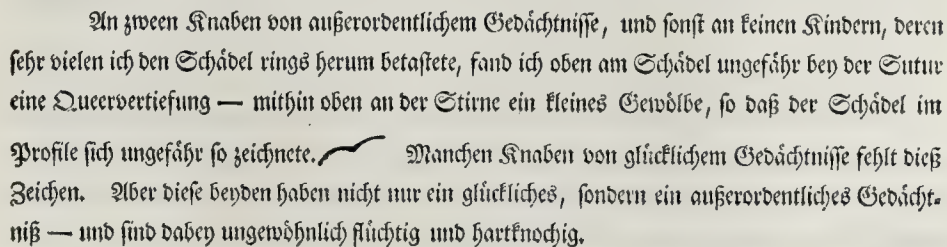 An zween Knaben von außerordentlichem Gedächtnisse, und sonst an keinen Kindern, deren
sehr vielen ich den Schädel rings herum betastete, fand ich oben am Schädel ungefähr bey der Sutur
eine Queervertiefung — mithin oben an der Stirne ein kleines Gewölbe, so daß der Schädel im
Profile sich ungefähr so zeichnete. Manchen Knaben von glücklichem Gedächtnisse fehlt dieß
Zeichen. Aber diese beyden haben nicht nur ein glückliches, sondern ein außerordentliches Gedächt-
niß — und sind dabey ungewöhnlich flüchtig und hartknochig.